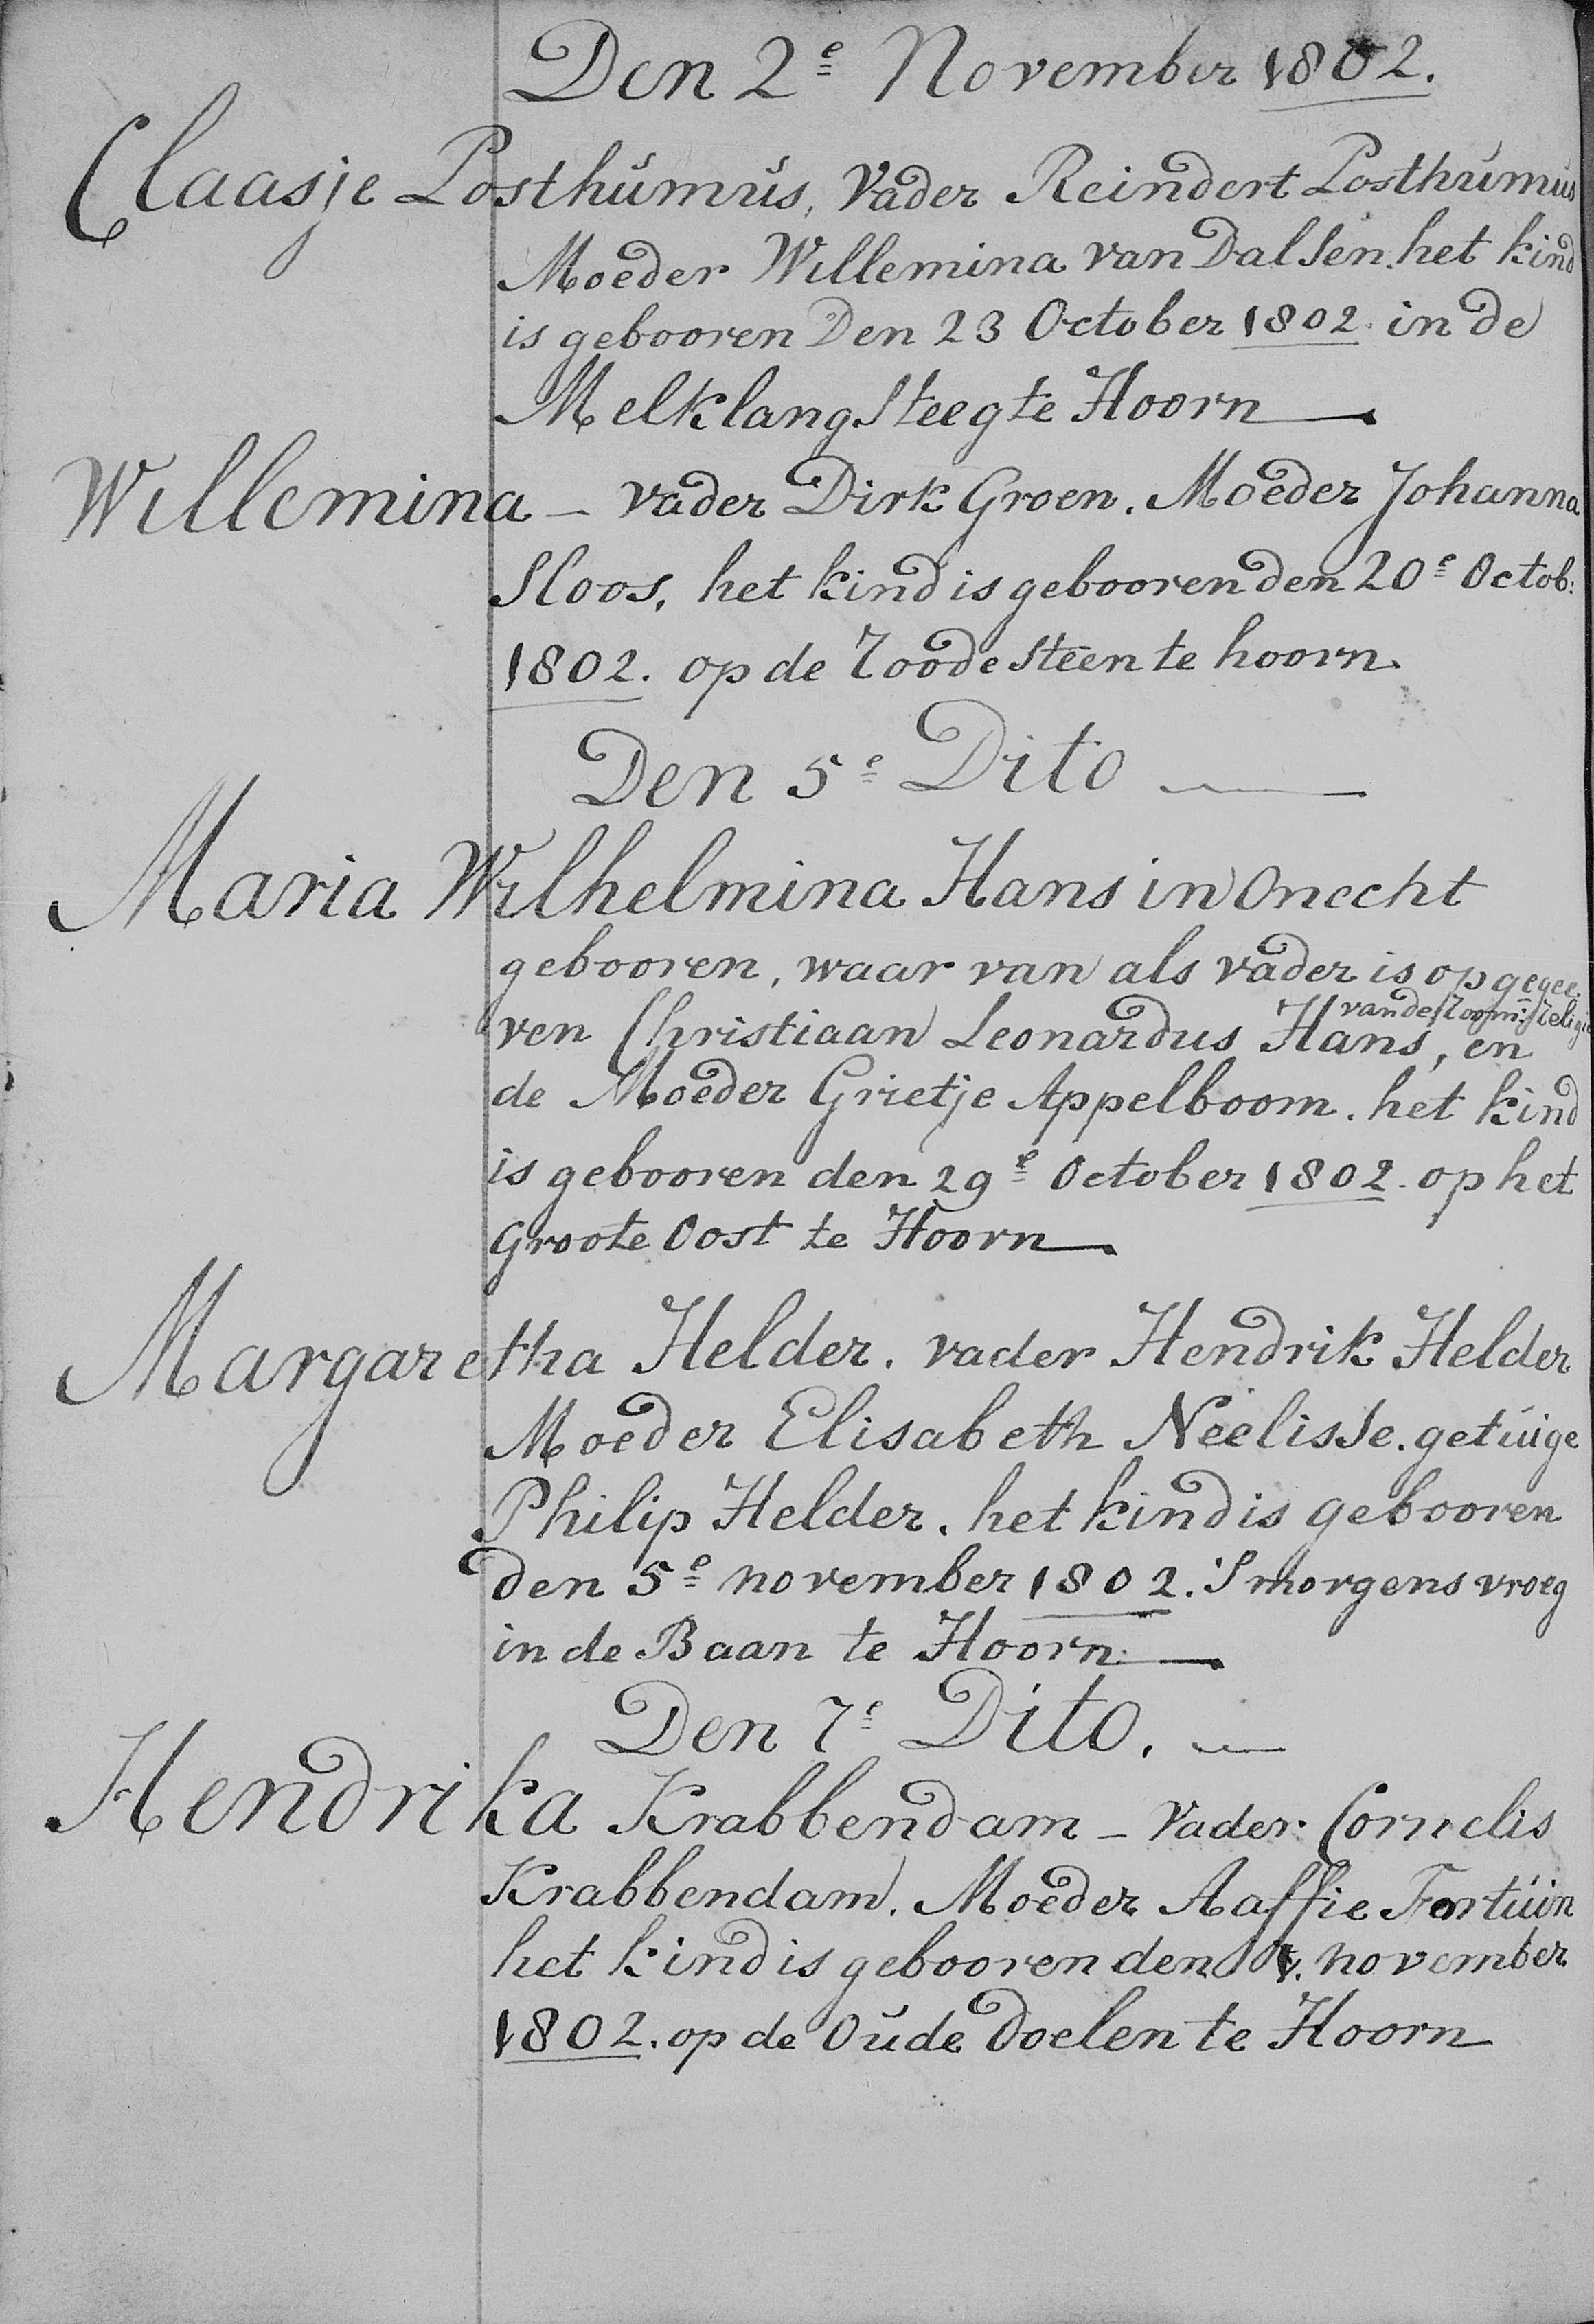 Den 2e November 1802.
Claasje Posthumus, Vader Reindert Posthumus
Moeder Willemina van Dalsen. het kind
is gebooren Den 23 October 1802. in de
Melklangsteeg te Hoorn
Willemina - vader Dirk Groen. Moeder Johanna
Sloos, het kind is gebooren den 20e Octob:
1802. op de roode steen te hoorn.
Den 5e Dito
Maria Wilhelmina Hans in Onecht
gebooren, waar van als vader is opgegee-
van de room: Religie
ven Christiaan Leonardus Hans, en
de Moeder Grietje Appelboom. het kind
is gebooren den 29e October 1802. op het
Groote Oost te Hoorn
Margaretha Helder. vader Hendrik Helder
Moeder Elisabeth Neelisse. getuige
Philip Helder. het kind is gebooren
den 5e november 1802. 's morgens vroeg
in de Baan te Hoorn.
Den 7e Dito.
Hendrika Krabbendam - Vader Cornelis
Krabbendam. Moeder Aaffie Fortuin
het kind is gebooren den november
1802. op de Oude Doelen te Hoorn